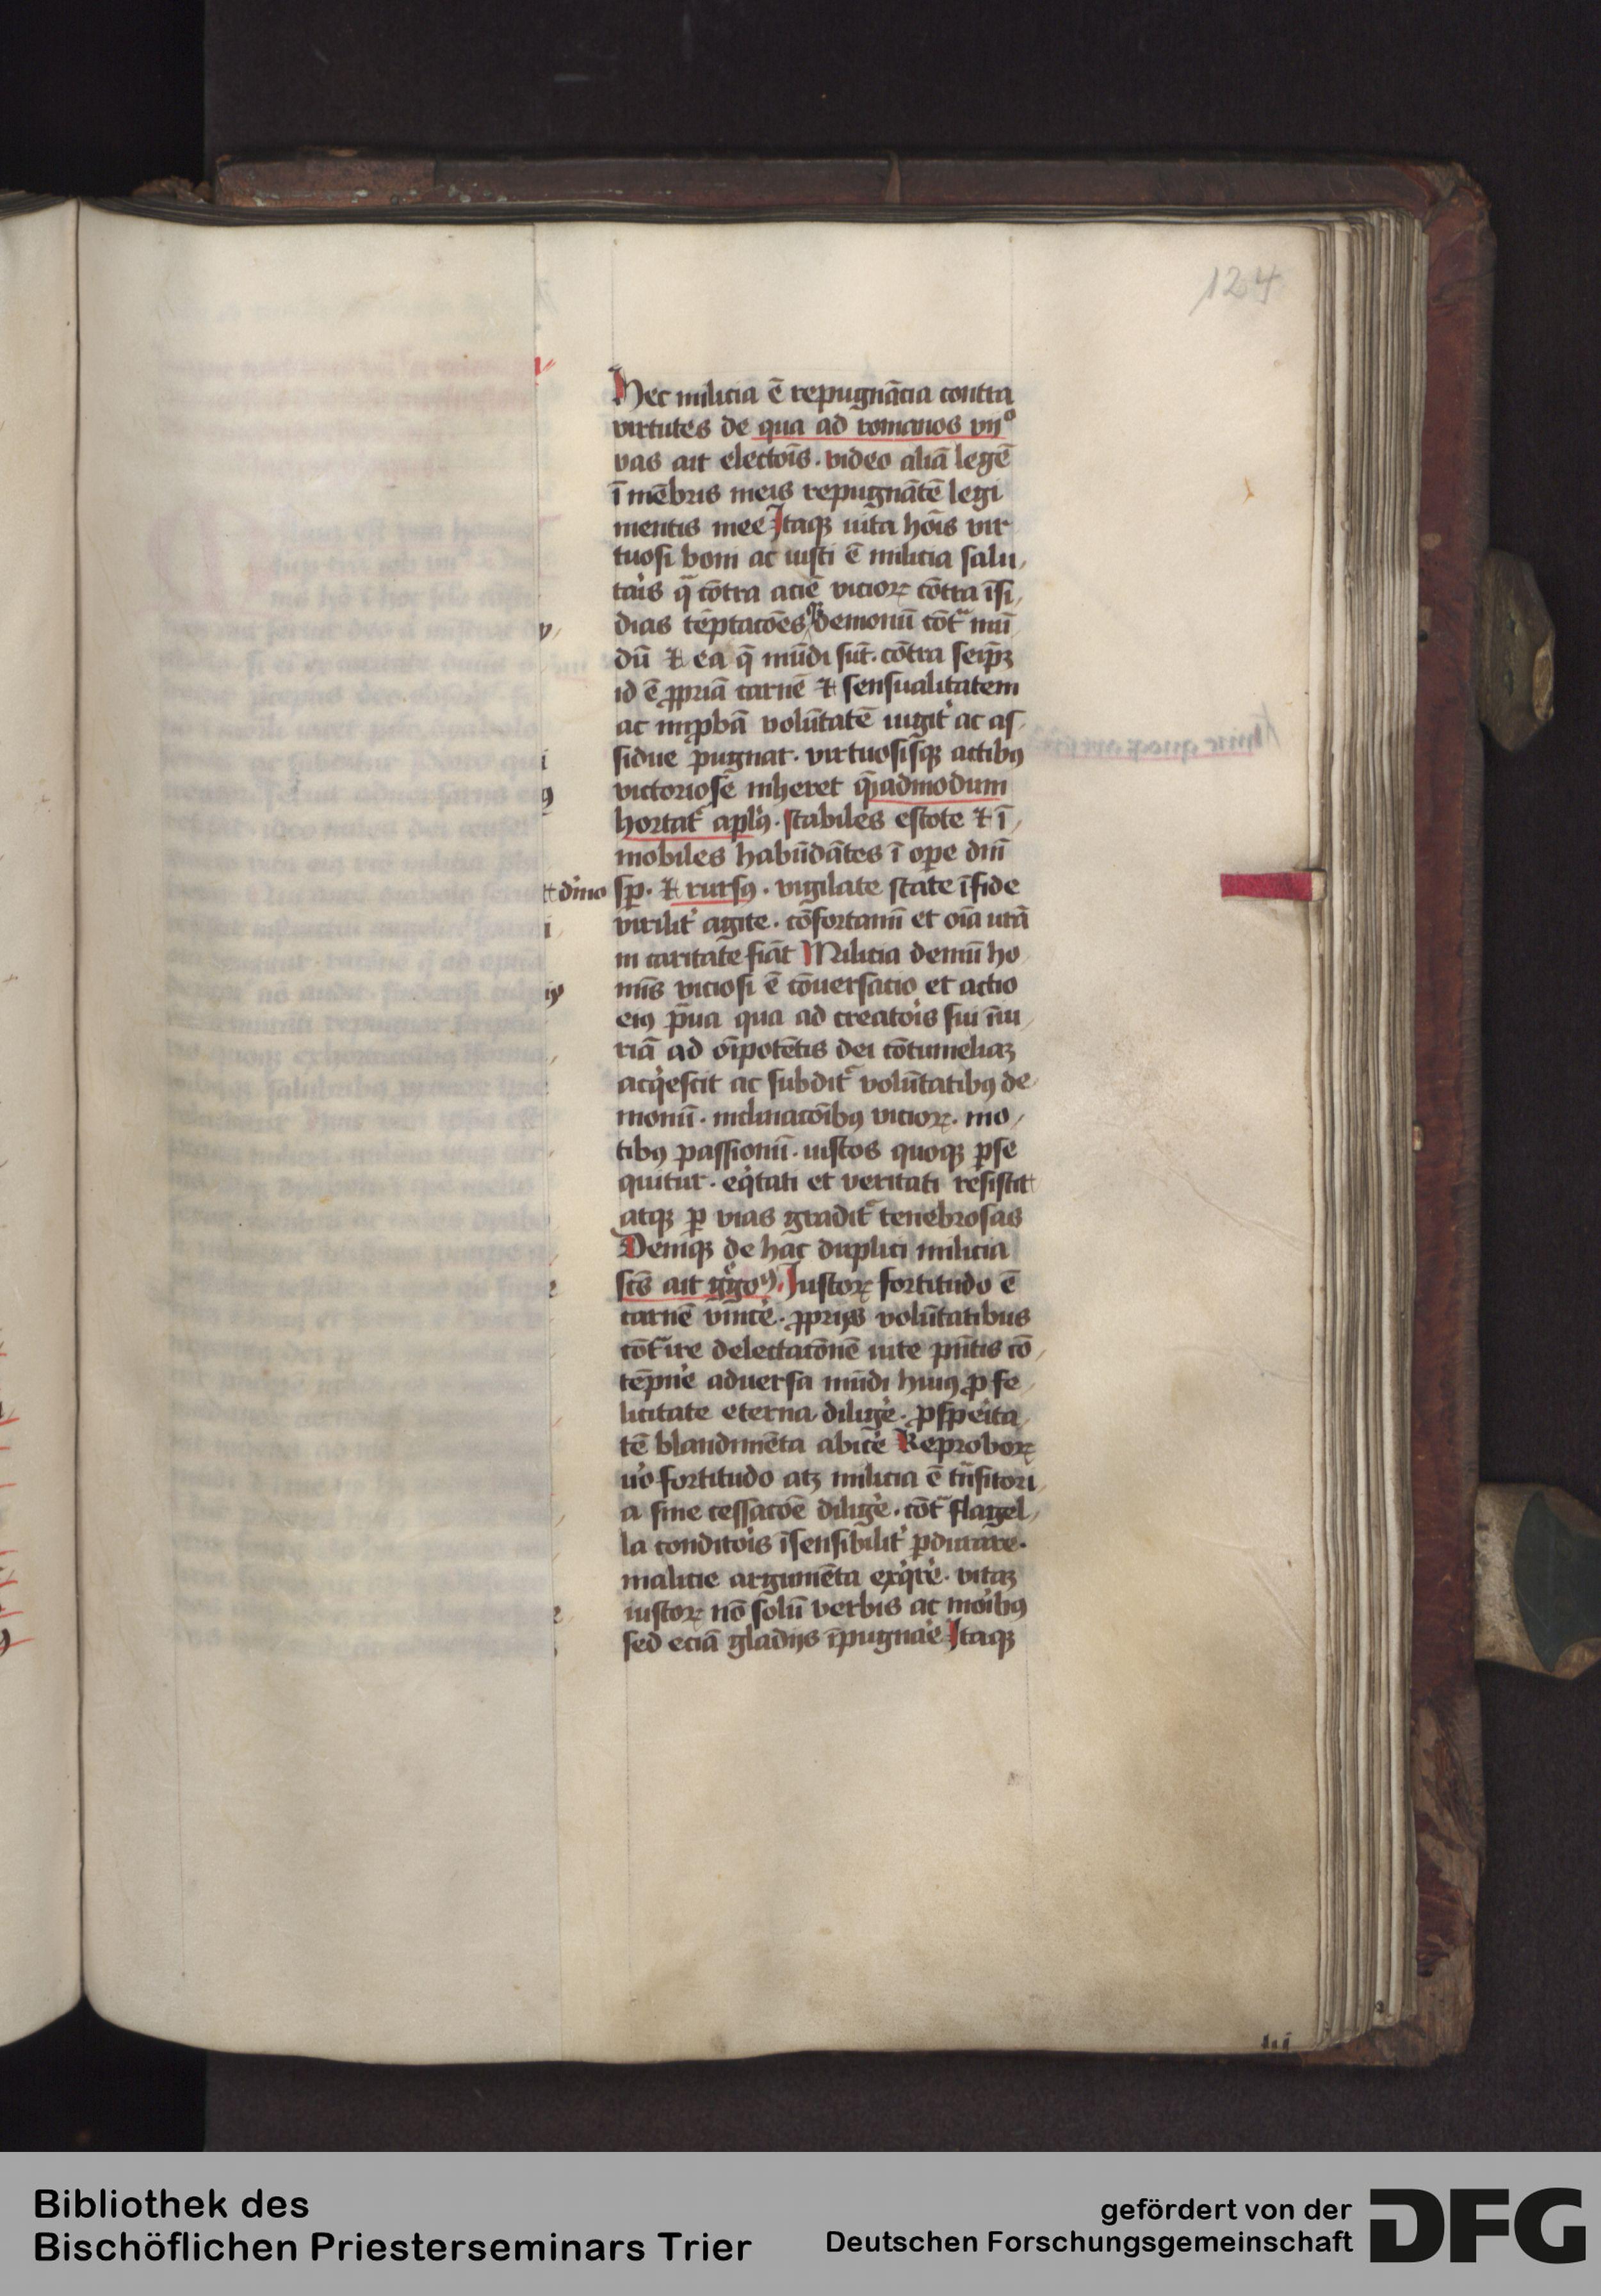 124
Hec milicia ē repugnācia contra
virtutes de qua ad romanos vijº
vas ait electōis. video aliā legē
ī mēbris meis repugnātē legi
mentis mee Itaqꝫ uita hōis vir
tuosi boni ac iusti ē milicia salu,
taris q̄ cōtra aciē vicioꝝ cōtra īsi,
dias tēptacōēs demonū cōt̄ mū
dū ⁊ ea q̄ mūdi sūt. cōtra seip̄ꝫ
id ē ꝓpriā carnē ⁊ sensualitatem
ac imꝓbā volūtatē iugit̉ ac as
sidue pugnat. virtuosisqꝫ actibꝰ
victoriose inheret q̄̄admodum
hortat̉ apl̄ꝰ. stabiles estote ⁊ ī,
mobiles habūdātes ī oꝑe dn̄i
sꝑ. ⁊ rursꝰ. vigilate state ī fide
virilit̉ agite. cōfortamī et oīa ur̄ā
in caritate fiāt Milicia demū ho
mīs viciosi ē cōuersacio et actio
eiꝰ p̄ua qua ad creatoris sui īiu,
riā ad oīpotētis dei cōtumeliaꝫ
acq̇escit ac subdit̉ volūtatibꝰ de
monū. inclinacōibꝰ vicioꝝ. mo,
tibꝰ passionū. iustos quoqꝫ ꝑse
quitur. eq̇tati et veritati resistit
atqꝫ ꝑ vias gradit̉ tenebrosas
Deniqꝫ de hac duplici milicia
sc̄s ait g̊goꝰ. Iustoꝝ fortitudo ē
carnē vīcē. ꝓprijs volūtatibus
cōt̄ire delectacōnē uite pn̄tis cō,
tēpn̉e aduersa mūdi huiꝰ ꝓ fe,
licitate eterna dilig̉e. ꝓsꝑita,
tē blandimēta abic̉e Reproboꝝ
u̇o fortitudo atqꝫ milicia ē tn̄sitori,
a sine cessacōe dilig̉e. cōt̄ flagel,
la conditoris īsensibilit̉ ꝑdurare.
malicie argumēta exq̇re. vitaꝫ
iustoꝝ nō solū verbis ac moribꝰ
sed eciā gladijs īpugnare Itaqꝫ
Bibliothek des
Bischöflichen Priesterseminars Trier
gefördert von der
Deutschen Forschungsgemeinschaft
DFG